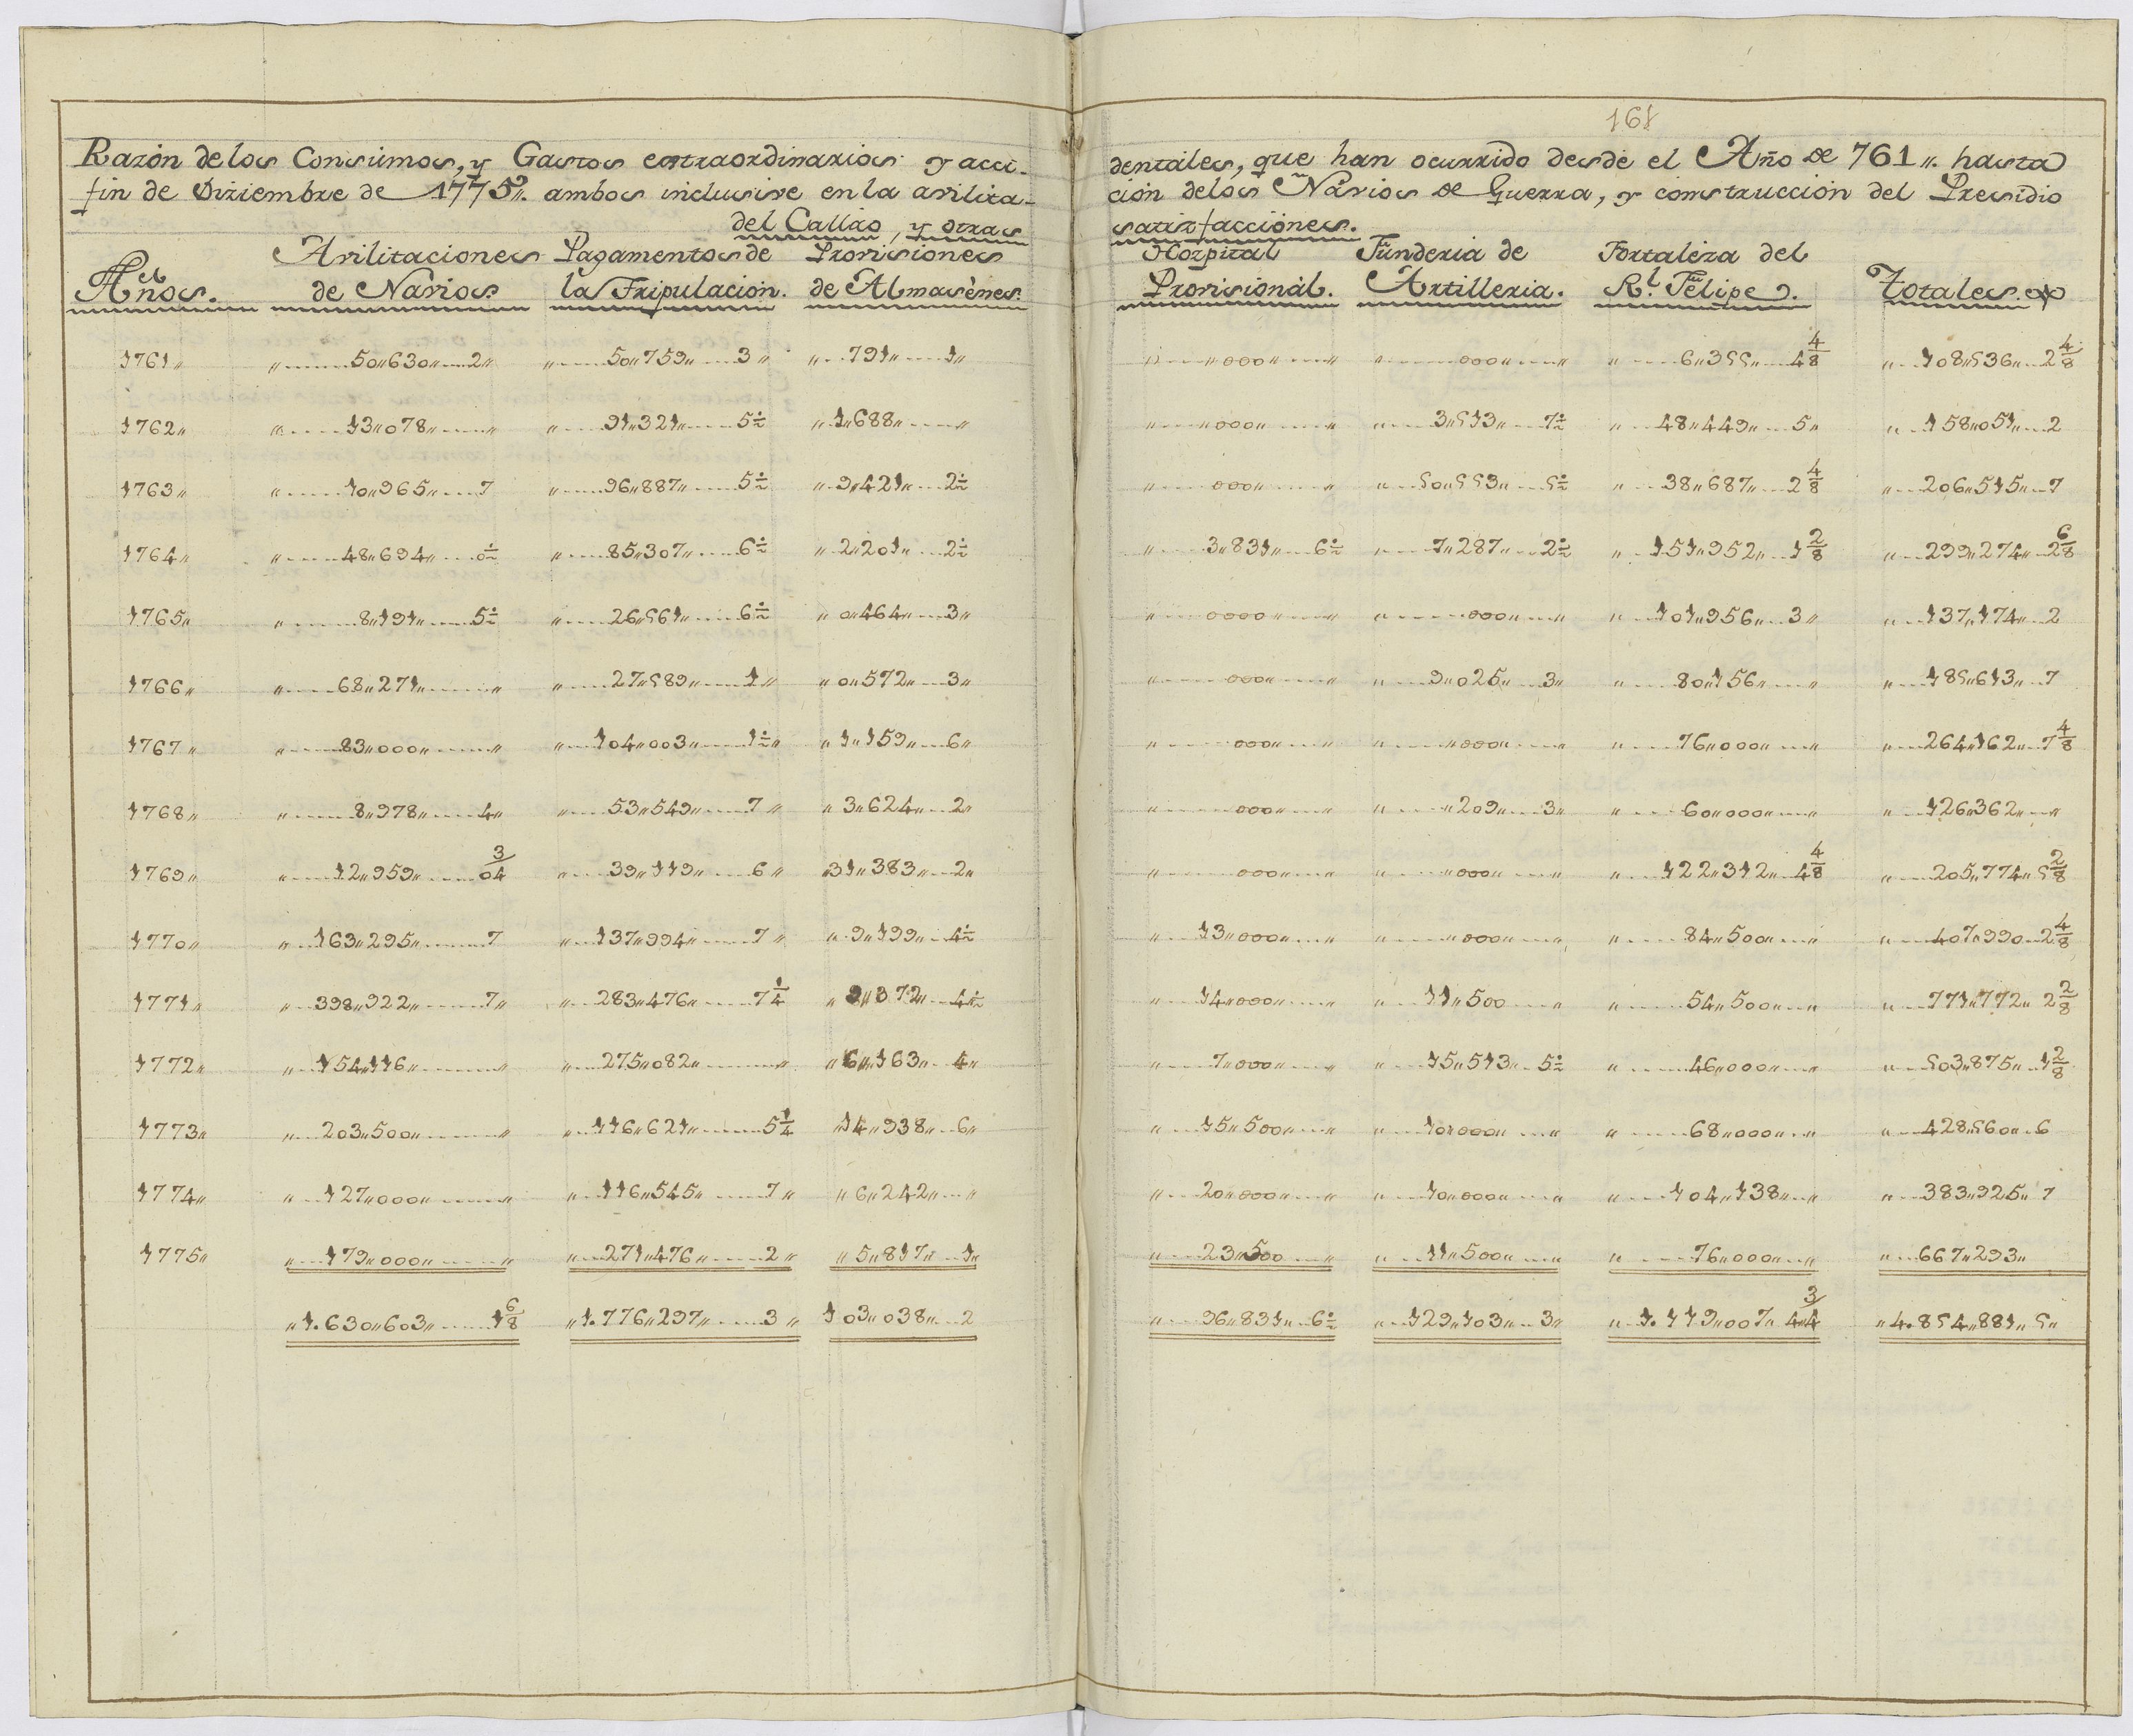 168
Razon de los Consumos, y Gastos extraordinarios y acci-
dentáles, que han ocurrido desde el Año de 761,, hasta
fin de Diziembre de 1775,, ambos inclusive en la avilita-
cion delos Navios de Guerra, y construccion del Presidio
del Callao, y otras
satisfacciones.
Años. Avilitaciones de Navios. Pagamentos de la Tripulacion. Provisiones de Almasènes. Hospital Provisionál. Funderia de Artilleria. Fortaleza del Rl. Felipe. Totales.
1761,, ,,50,,630,,2,, ,,50,,759,,3,, ,,791,,1,, ,,000,, ,,000,, ,,6,,355,,4 4/8 ,,108,,536,,2 4/8
1762,, ,,13,,078,, ,,91,,321,,5½ ,,1,,688,, ,,000,, ,,3,,513,,7½ ,,48,,449,,5,, ,,158,,051,,2
1763,, ,,10,,965,,7 ,,96,,887,,5½ ,,9,,421,,2½ ,,000,, ,,50,,553,,5½ ,,38,,687,,2 4/8 ,,206,,515,,7
1764,, ,,48,,694,,0½ ,,85,,307,,6½ ,,2,,201,,2½ ,,3,,831,,6½ ,,7,,287,,2½ ,,151,,952,,1 2/8 ,,299,,274,,2 6/8
1765,, ,,8,,191,,5½ ,,26,,561,,6½ ,,0,,464,,3,, ,,0000,, ,,000,, ,,101,,956,,3,, ,,137,,174,,2
1766,, ,,68,,271,, ,,27,,589,,1,, ,,0,,572,,3,, ,,000,, ,,9,,025,,3,, ,,80,,156,, ,,185,,613,,7
1767,, ,,83,,000,, ,,104,,003,,1½,, ,,1,,159,,6,, ,,000,, ,,000,, ,,76,,000,, ,,264,,162,,7 4/8
1768,, ,,8,,978,,4,, ,,53,,549,,7,, ,,3,,624,,2,, ,,000,, ,,209,,3,, ,,60,,000,, ,,126,,362,,
1769,, ,,12,,959,,0 3/4 ,,39,,119,,6,, ,,31,,383,,2,, ,,000,, ,,000,, ,,122,,312,,4 4/8 ,,205,,774,,5 2/8
1770,, ,,163,,295,,7 ,,137,,994,,7,, ,,9,,199,,4½ ,,13,,000,, ,,000,, ,,84,,500,, ,,407,,990,,2 4/8
1771,, ,,398,,922,,7,, ,,283,,476,,7 1/4 ,,9,,372,,4½ ,,14,,000,, ,,11,,500 ,,54,,500,, ,,771,,772,,2 2/8
1772,, ,,154,,116,, ,,275,,082,, ,,6,,163,,4,, ,,7,,000,, ,,15,,513,,5½ ,,46,,000,, ,,503,,875,,1 2/8
1773,, ,,203,,500,, ,,116,,621,,5 1/4 ,,14,,938,,6,, ,,15,,500,, ,,10,,000,, ,,68,,000,, ,,428,,560,,6
1774,, ,,127,,000,, ,,116,,545,,7,, ,,6,,242,, ,,20,,000,, ,,10,,000,, ,,104,,138,, ,,383,,925,,7
1775,, ,,179,,000,, ,,271,,476,,2,, ,,5,,817,,1,, ,,23,,500 ,,11,,500,, ,,76,,000,, ,,667,,293,,
,,1.630,,603,,1 6/8 ,,1.776,,297,,3,, 103,,038,,2 ,,96,,831,,6½ ,,129,,103,,3,, ,,1.119,,007,,4 3/4 ,,4.854,,881,,5,,